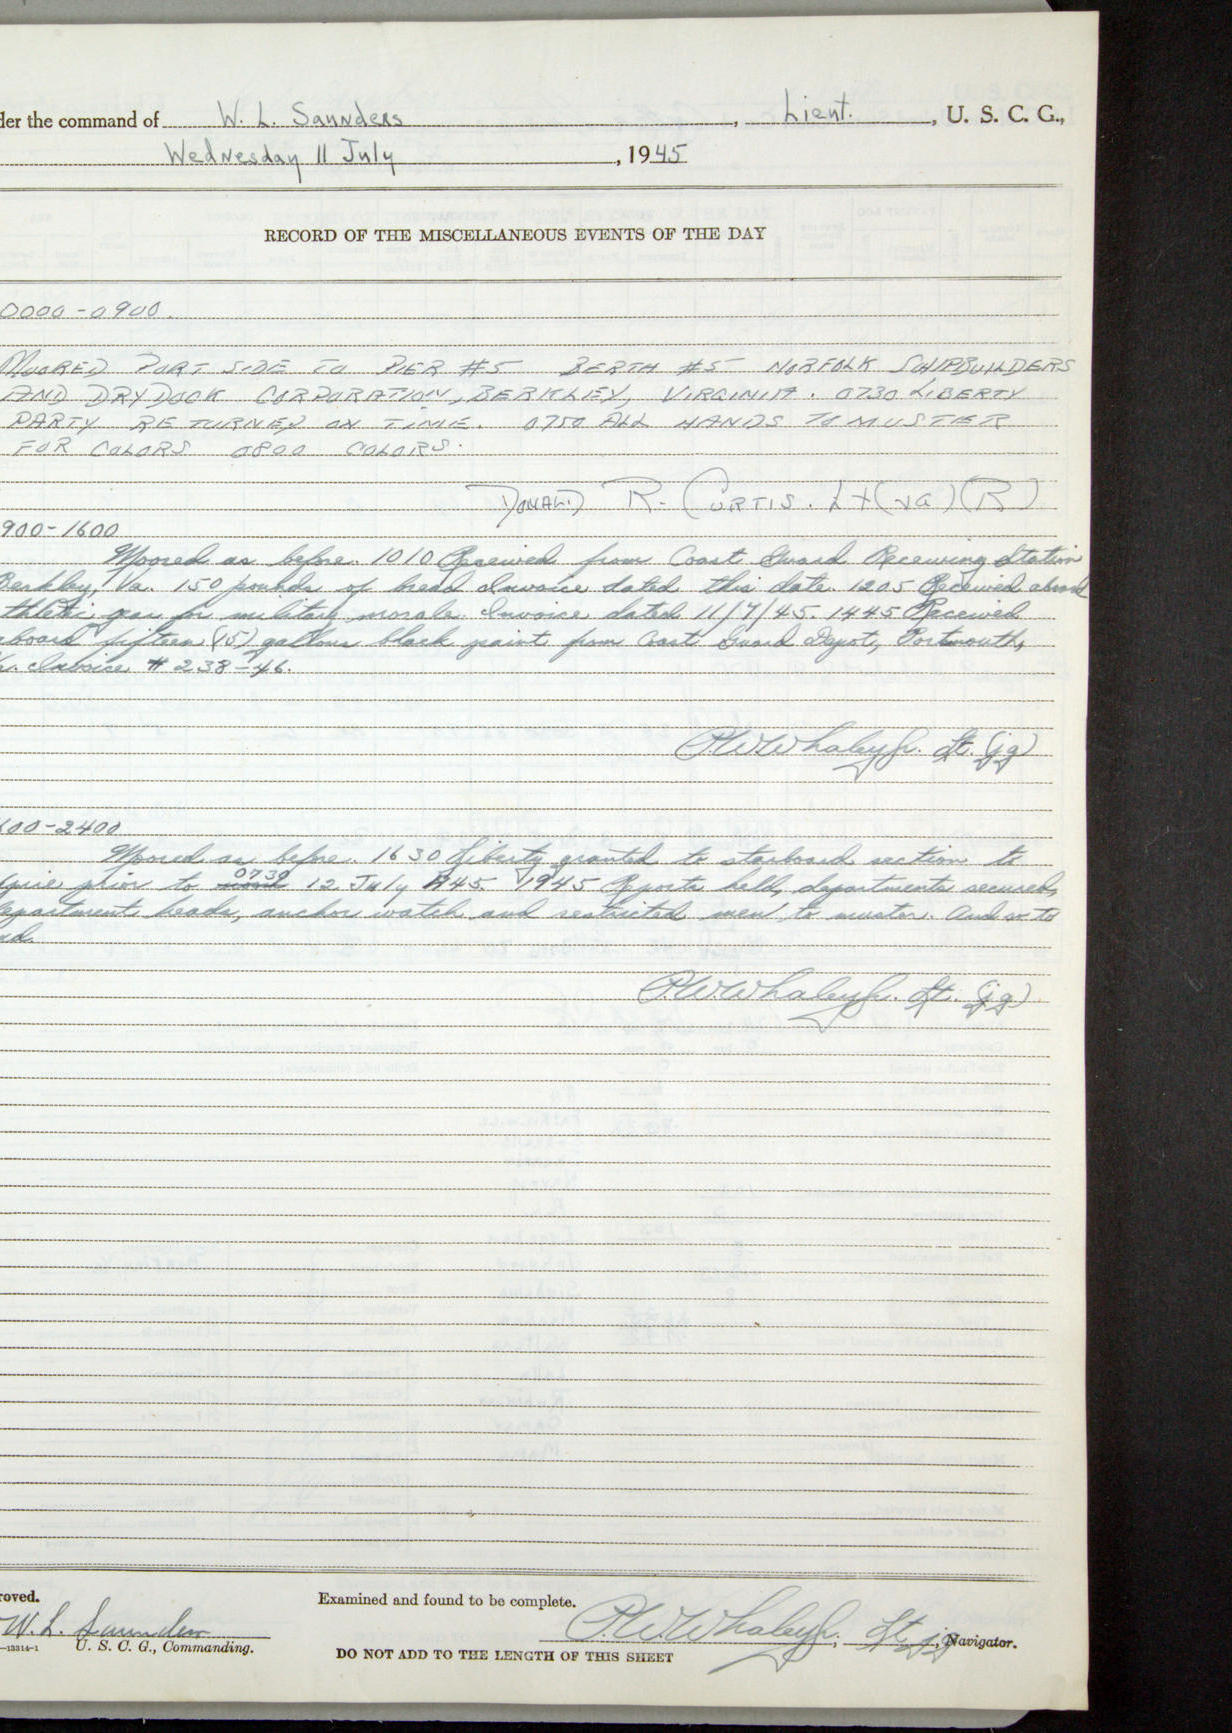 der the command of W. L. Saunders, Lieut., U. S. C. G.,
Wednesday 11 July, 1945
RECORD OF THE MISCELLANEOUS EVENTS OF THE DAY
0000-0900.
MOORED PORT SIDE TO PIER #5 BERTH #5 NORFOLK SHIPBUILDERS
AND DRYDOCK CORPORATION, BERKLEY, VIRGINIA. 0730 LIBERTY
PARTY RETURNED ON TIME. 0750 ALL HANDS TO MUSTER
FOR COLORS 0800 COLORS.
DONALD R. CURTIS. Lt(JG)(R)
900-1600
Moored as before. 1010 Received from Coast Guard Receiving Station
Berkley, Va. 150 pounds of bread Invoice dated this date. 1205 Received aboard
thletic gear for military morale. Invoice dated 11/7/45. 1445 Received
aboard fifteen (15) gallons black paint from Coast Guard Depot, Portsmouth,
a. Invoice #238-46.
P.W. Whaley Jr. Lt. (jg)
600-2400
Moored as before. 1630 Liberty granted to starboard section to
xpire prior to 0730 12 July 1945. 1945 Reports held, departments secured,
department heads, anchor watch and restricted men to muster. And so to
P.W. Whaley Jr. Lt. (jg)
roved.
Examined and found to be complete.
W. L. Saunders
P.W. Whaley Jr., Lt. jg, Navigator.
—13314-1 U. S. C. G., Commanding.
DO NOT ADD TO THE LENGTH OF THIS SHEET